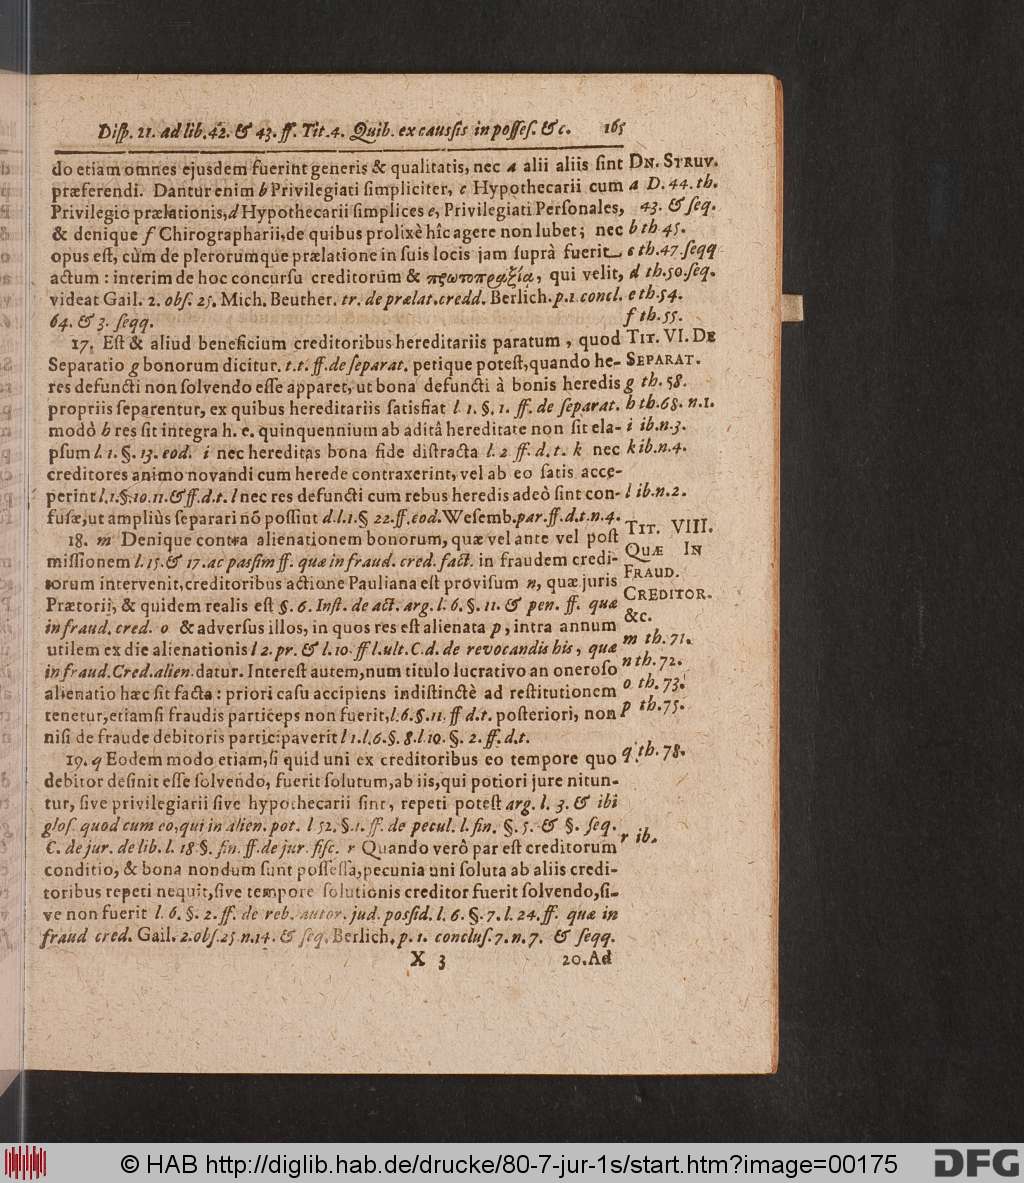 Disp. 21. ad lib. 42. & 43. ff. Tit. 4. Quib. ex causſis in poſſeſ. &c. 165
do etiam omnes ejusdem fuerint generis & qualitatis, nec a alii aliis ſint
præferendi. Dantur enim b Privilegiati ſimpliciter, c Hypothecarii cum
Privilegio prælationis, d Hypothecarii ſimplices e, Privilegiati Perſonales,
& denique f Chirographarii, de quibus prolixè hîc agere non lubet; nec
opus eſt, cùm de plerorumque prælatione in ſuis locis jam ſuprà fuerit
actum: interim de hoc concurſu creditorùm & πρωτοπραξία, qui velit,
videat Gail. 2. obſ. 25. Mich. Beuther. tr. de prælat. credd. Berlich. p. 1. concl.
64. & 3. ſeqq.
17. Eſt & aliud beneficium creditoribus hereditariis paratum, quod
Separatio g bonorum dicitur. t. t. ff. de ſeparat. petique poteſt, quando he-
res defuncti non ſolvendo eſſe apparet, ut bona defuncti à bonis heredis
propriis ſeparentur, ex quibus hereditariis ſatisfiat l. 1. §. 1. ff. de ſeparat.
modò h res ſit integra h. e. quinquennium ab aditâ hereditate non ſit ela-
pſum l. 1. §. 13. eod. i nec hereditas bona fide diſtracta l. 2 ff. d. t. k nec
creditores animo novandi cum herede contraxerint, vel ab eo ſatis acce-
perint l. 1. §. 10. 11. & ff. d. t. l nec res defuncti cum rebus heredis adeò ſint con-
fuſæ, ut ampliùs ſeparari nō poſſint d. l. 1. § 22. ff. eod. Weſemb. par. ff. d. t. n. 4.
18. m Denique contra alienationem bonorum, quæ vel ante vel poſt
miſſionem l. 15. & 17. ac paſſim ff. quæ in fraud. cred. fact. in fraudem credi-
torum intervenit, creditoribus actione Pauliana eſt proviſum n, quæ juris
Prætorii, & quidem realis eſt §. 6. Inſt. de act. arg. l. 6. §. 11. & pen. ff. quæ
in fraud. cred. o & adverſus illos, in quos res eſt alienata p, intra annum
utilem ex die alienationis l 2. pr. & l. 10. ff l. ult. C. d. de revocandis his, quæ
in fraud. Cred. alien. datur. Intereſt autem, num titulo lucrativo an oneroſo
alienatio hæc ſit facta: priori caſu accipiens indiſtinctè ad reſtitutionem
tenetur, etiamſi fraudis particeps non fuerit, l. 6. §. 11. ff d. t. poſteriori, non
niſi de fraude debitoris participaverit l 1. l. 6. §. 8. l 10. §. 2. ff. d. t.
19. q Eodem modo etiam, ſi quid uni ex creditoribus eo tempore quo
debitor deſinit eſſe ſolvendo, fuerit ſolutum, ab iis, qui potiori jure nitun-
tur, ſive privilegiarii ſive hypothecarii ſint, repeti poteſt arg. l. 3. & ibi
gloſ. quod cum eo, qui in alien. pot. l 52. §. 1. ff. de pecul. l. fin. §. 5. & §. ſeq.
C. de jur. de lib. l. 18 §. fin. ff. de jur. fiſc. r Quando verò par eſt creditorum
conditio, & bona nondum ſunt poſſeſſa, pecunia uni ſoluta ab aliis credi-
toribus repeti nequit, ſive tempore ſolutionis creditor fuerit ſolvendo, ſi-
ve non fuerit l. 6. §. 2. ff. de reb. autor. jud. poſſid. l. 6. §. 7. l. 24. ff. quæ in
fraud cred. Gail. 2. obſ. 25 n. 14. & ſeq. Berlich. p. 1. concluſ. 7. n. 7. & ſeqq.
X 3 20. Ad
DN. STRUV.
a D. 44. th.
43. & ſeq.
b th 45.
c th. 47. ſeqq
d th. 50. ſeq.
e th. 54.
f th. 55.
TIT. VI. DE
SEPARAT.
g th. 58.
h th. 68. n. 1.
i ib. n. 3.
k ib. n. 4.
l ib. n. 2.
TIT. VIII.
QUÆ IN
FRAUD.
CREDITOR.
&c.
m th. 71.
n th. 72.
o th. 73.
p th. 75.
q th. 78.
r ib.
© HAB http://diglib.hab.de/drucke/80-7-jur-1s/start.htm?image=00175
DFG